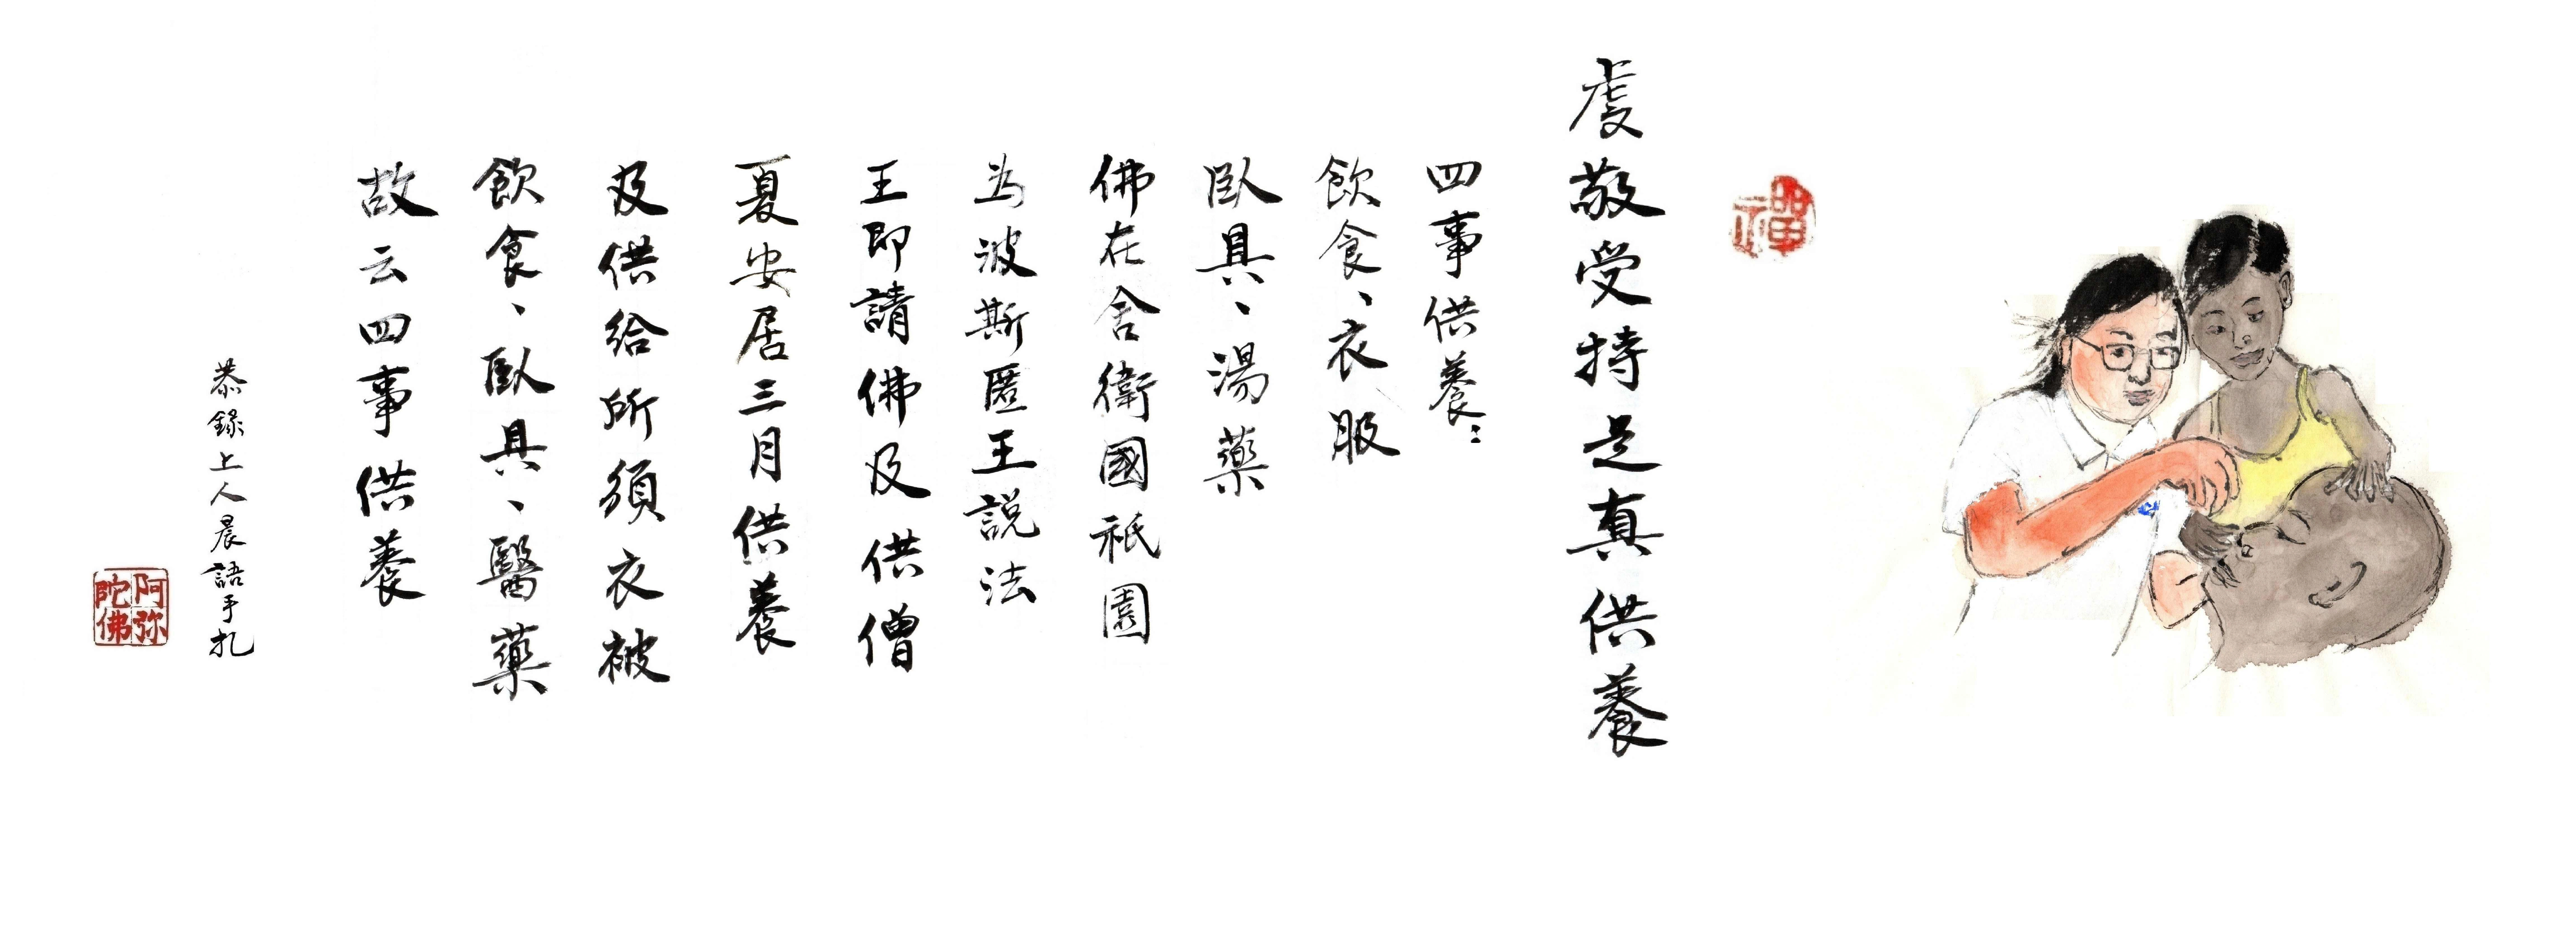 禪
虔敬受持是真供養
四事供養：
飲食、衣服
臥具、湯藥
佛在舍衛國祇園
為波斯匿王説法
王即請佛及供僧
夏安居三月供養
及供給所須衣被
飲食、臥具、醫藥
故云四事供養
恭錄上人晨語手扎
阿弥陀佛